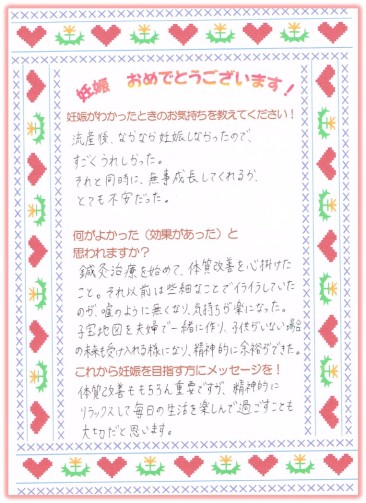 妊娠 おめでとうございます！
妊娠がわかったときのお気持ちを教えてください！
流産後、なかなか妊娠しなかったので、
すごくうれしかった。
それと同時に、無事成長してくれるか、
とても不安だった。
何がよかった（効果があった）と
思われますか？
鍼灸治療を始めて、体質改善を心掛けた
こと。それ以前は些細なことでイライラしていた
のが、嘘のように無くなり、気持ちが楽になった。
子宝地図を夫婦で一緒に作り、子供がいない場合
の未来も受け入れる様になり、精神的に余裕ができた。
これから妊娠を目指す方にメッセージを！
体質改善ももちろん重要ですが、精神的に
リラックスして毎日の生活を楽しんで過ごすことも
大切だと思います。